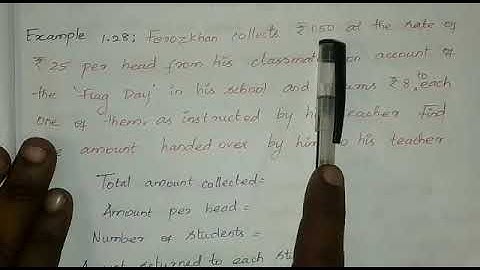 Example 1.28: Ferozkhan collects ₹1150 at the rate of
₹25 per head from his classmates on account of
the 'Flag Day' in his school and returns ₹8 to each
one of them, as instructed by his teacher. Find
the amount handed over by him to his teacher
Total amount collected=
Amount per head =
Number of students =
Amount returned to each